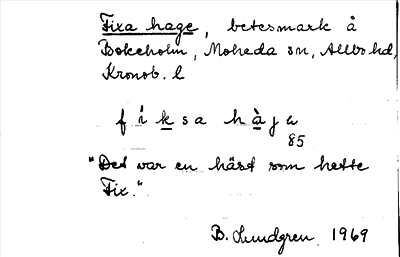 Fixa hage, betesmark å
Bokeholm, Moheda sn, Allbo hd,
Kronob. l
fíksa hàja
85
"Det var en häst som hette
Fix."
B. Lundgren 1969